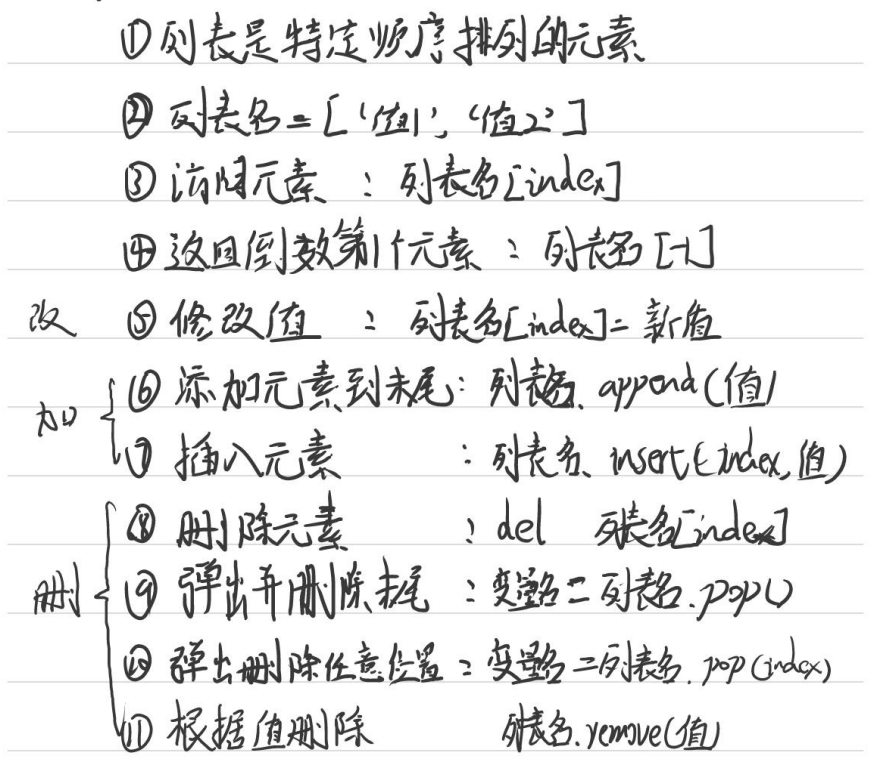 ① 列表是特定顺序排列的元素
② 列表名 = ['值1', '值2']
③ 访问元素 : 列表名[index]
④ 返回倒数第1个元素 : 列表名[-1]
改 ⑤ 修改值 : 列表名[index] = 新值
加 ⑥ 添加元素到末尾 : 列表名.append(值)
⑦ 插入元素 : 列表名.insert(index, 值)
⑧ 删除元素 : del 列表名[index]
删 ⑨ 弹出并删除末尾 : 变量名 = 列表名.pop()
⑩ 弹出删除任意位置 : 变量名 = 列表名.pop(index)
⑪ 根据值删除 列表名.remove(值)